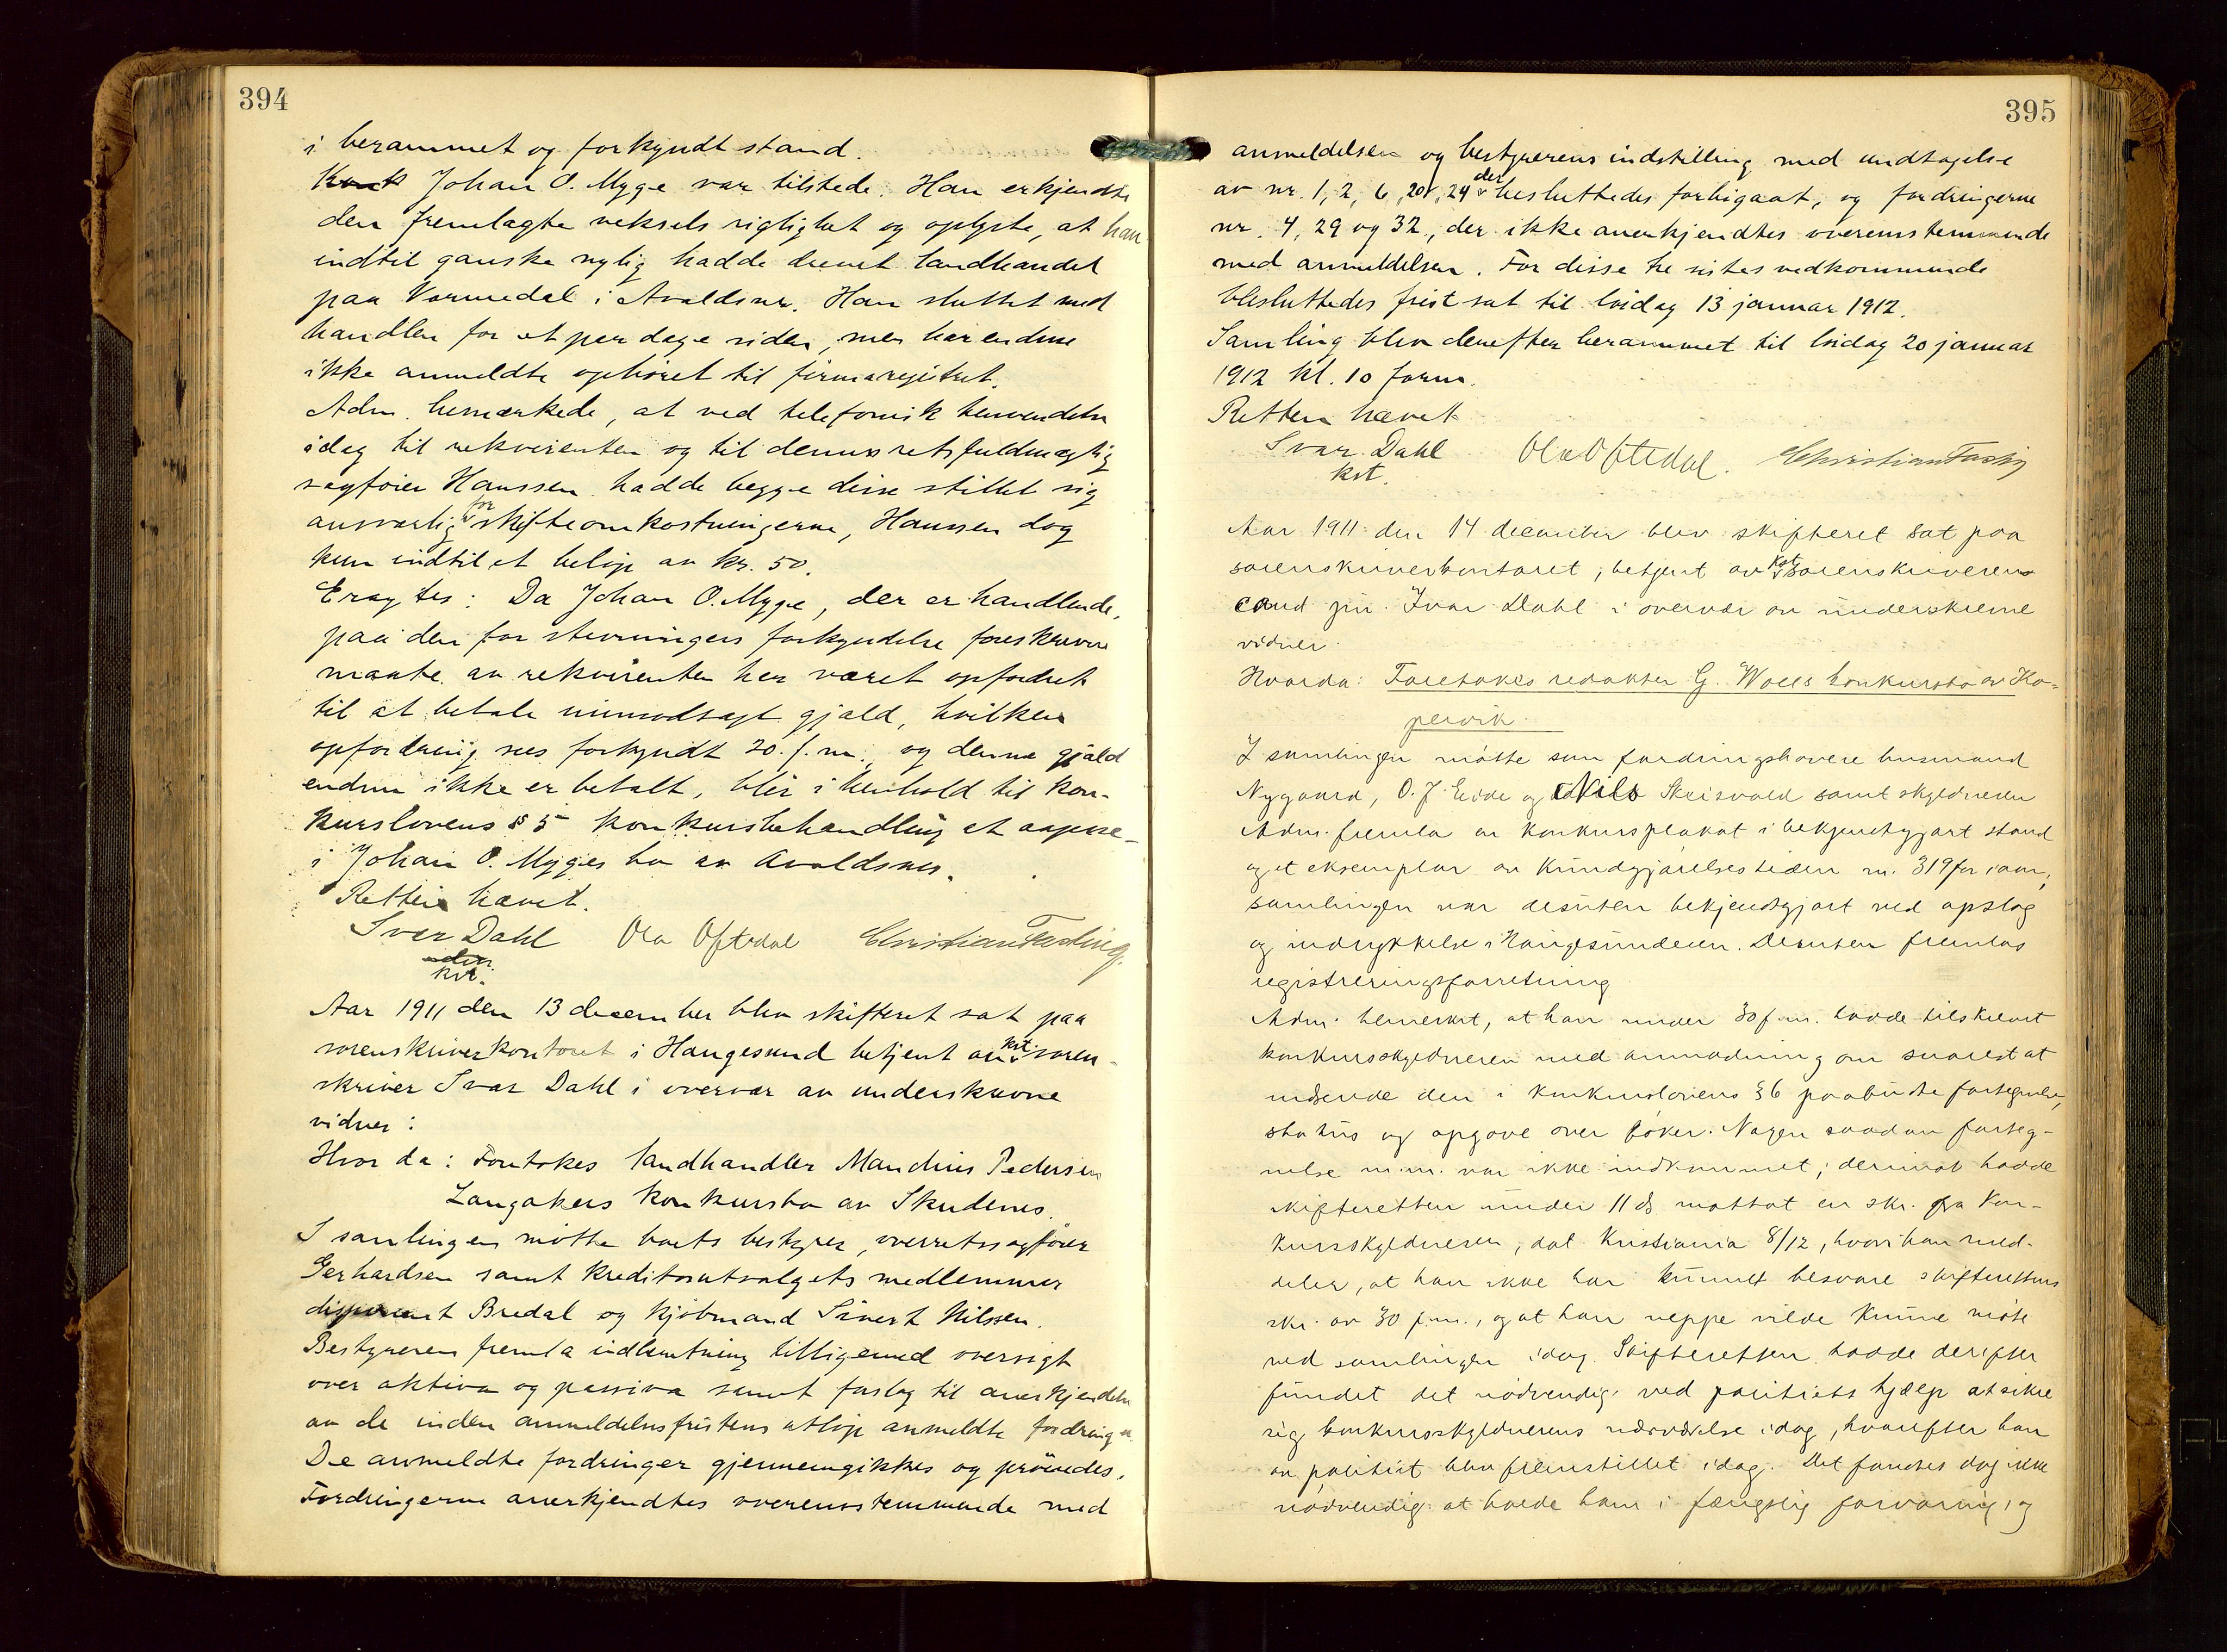 394
i berammet og forkyndt stand.
Johan O. Mygge var tilstede. Han erkjendte
den fremlagte veksels rigtighet og oplyste, at han
indtil ganske nylig hadde drevet landhandel
paa Vormedal i Avaldsnes. Han sluttet med
handlen for et par dage siden, men har endnu
ikke anmeldte ophøret til firmaregistret.
Adm. bemærkede, at ved telefonisk henvendelse
idag til rekvirenten og til dennes retsfuldmægtig
sagfører Hanssen hadde begge disse stillet sig
ansvarlig for skifteomkostningerne, Hanssen dog
kun indtil et beløp av kr. 50.
Eragtes: Da Johan O. Mygge, der er handlende,
paa den for stevningers forkyndelse foreskrevne
maate av rekvirenten har været opfordret
til at betale uimodsagt gjæld, hvilken
opfordring sees forkyndt 20. f.m., og denne gjæld
endnu ikke er betalt, blir i henhold til kon-
kurslovens § 5 konkursbehandling at aapne
i Johan O. Mygges bo av Avaldsnes.
Retten hævet.
Ivar Dahl Ola Oftedal Christian Fasting.
kst.
Aar 1911 den 13 december blev skifteret sat paa
sorenskriverkontoret i Haugesund betjent av kst. soren-
skriver Ivar Dahl i overvær av underskrevne
vidner:
Hvor da: Foretokes landhandler Mandius Pedersen
Langakers konkursbo av Skudenes.
I samlingen møtte boets bestyrer, overretssagfører
Gerhardsen samt kreditorutvalgets medlemmer
disponent Bredal og kjøbmand Sivert Nilssen.
Bestyreren fremla indberetning tilligemed oversigt
over aktiva og passiva samt forslag til anerkjendelse
av de inden anmeldelsesfristens utløp anmeldte fordringer.
De anmeldte fordringer gjennemgikkes og prøvedes.
Fordringerne anerkjendtes overensstemmende med
395
anmeldelsen og bestyrerens indstilling med undtagelse
av nr. 1, 2, 6, 20, 24 der besluttedes forbigaat, og fordringerne
nr. 4, 29 og 32, der ikke anerkjendtes overensstemmende
med anmeldelsen. For disse tre sistes vedkommende
besluttedes frist sat til lørdag 13 januar 1912.
Samling blev derefter berammet til lørdag 20 januar
1912 kl. 10 form.
Retten hævet
Ivar Dahl Ola Oftedal. Christian Fasting
kst.
Aar 1911 den 14 december blev skifteret sat paa
sorenskriverkontoret, betjent av kst sorenskriveren
cand jur. Ivar Dahl i overvær av underskrevne
vidner.
Hvorda: Foretokes redaktør G. Wolls konkursbo av Ko-
pervik.
I samlingen møtte som fordringshavere
Nygaard, O. J. Eide og Nils Skeisvold samt skyldneren
Adm. fremla en konkursplakat i bekjendtgjort stand
og et eksemplar av Kundgjørelsestidende nr. 319 for iaar,
samlingen var desuten bekjendtgjort ved opslag
og indrykkelse i Haugesunderen. Desuten fremlas
registreringsforretning
Adm. bemerket, at han under 30 f.m. hadde tilskrevet
konkursskyldneren med anmodning om snarest at
indsende den i konkurslovens § 6 paabudte fortegnelse,
status og opgave over bøker. Nogen saadan forteg-
nelse m.m. var ikke indkommet; derimot hadde
skifteretten under 11 ds mottat en skr. fra kon-
kursskyldneren, dat. Kristiania 8/12, hvori han med-
deler, at han ikke har kunnet besvare skifterettens
skr. av 30 f.m., og at han neppe vilde kunne møte
ved samlingen idag. Skifteretten hadde derefter
fundet det nødvendig ved politiets hjælp at sikre
sig konkursskyldnerens nærværelse idag, hvorefter han
av politiet blev fremstillet idag. Det fandtes dog ikke
nødvendig at holde ham i fængslig forvaring, og